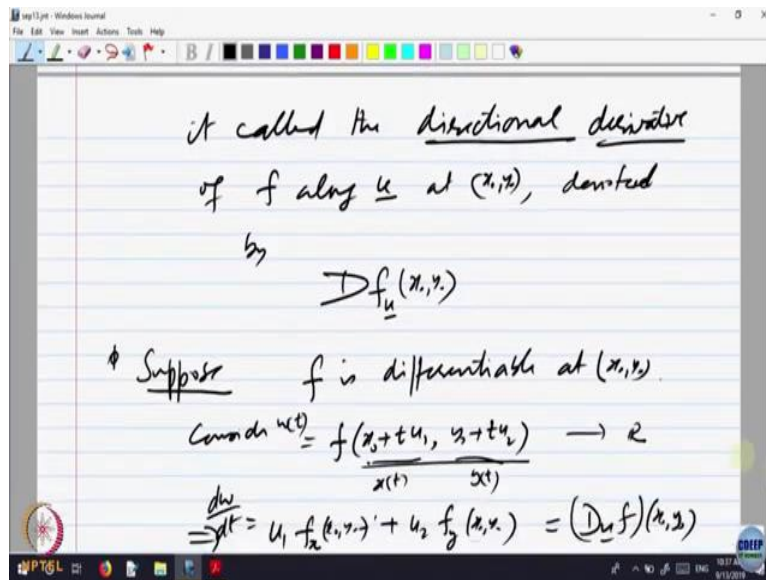 sep13.jnt - Windows Journal
File Edit View Insert Actions Tools Help
B I
it called the directional derivative
of f along u at (x₀,y₀), denoted
by
D f_u (x₀,y₀)
Suppose f is differentiable at (x₀,y₀).
Consider w(t) = f(x₀+tu₁, y₀+tu₂) → R
x(t) y(t)
⇒ dw/dt = u₁ f_x(x₀,y₀) + u₂ f_y(x₀,y₀) = (D_u f)(x₀,y₀)
NPTEL
CDEEP
ENG 10:37 AM
9/13/2019